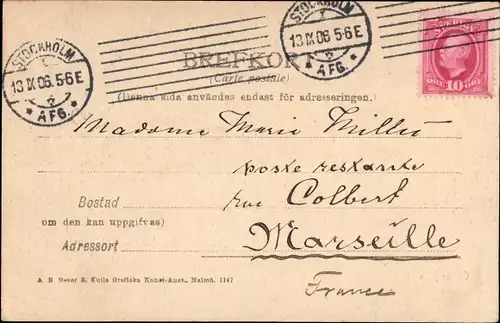 STOCKHOLM
13 IX 06. 5-6 E
AFG.
STOCKHOLM
13 IX 06. 5-6 E
AFG.
SVERIGE
10 ÖRE
BREFKORT
(Carte postale)
(Denna sida användes endast för adresseringen.)
Madame Marie
poste restante
Bostad rue Colbert
om den kan uppgifvas)
Adressort Marseille
A B Oscar E. Kulls Grafiska Konst-Anst., Malmö. 1147
France